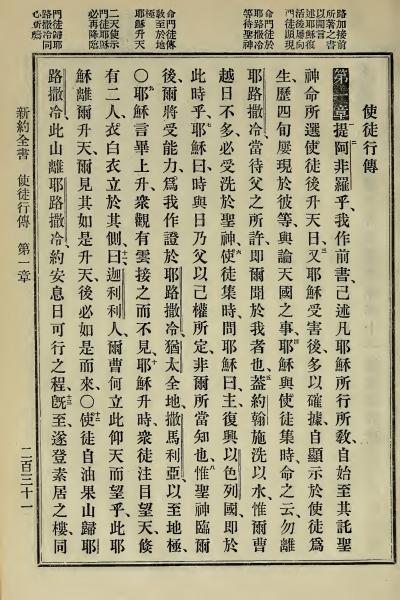 路加接前
所著之書
以開言
述耶穌復
活後屢向
門徒顯現
命門徒於
耶路撒冷
等待聖神
命門徒傳
教至於地
極
耶穌升天
二天使示
門徒耶穌
必再降臨
門徒歸耶
路撒冷同
心祈禱
使徒行傳
第一章 一提阿非羅乎、二我作前書、已述凡耶穌所行所敎、自始至其託聖
神命所選使徒後升天日、三又耶穌受害後、多以確據、自顯示於使徒、爲
生、歷四旬屢現於彼等、與論天國之事、四耶穌與使徒集時、命之云、勿離
耶路撒冷、當待父之所許、卽爾聞於我者也、五蓋約翰施洗以水、惟爾曹
越日不多、必受洗於聖神、六使徒集時、問耶穌曰、主復興以色列國、卽於
此時乎、七耶穌曰、時與日乃父以己權所定、非爾所當知也、八惟聖神臨爾
後、爾將受能力、爲我作證於耶路撒冷、猶太全地、撒馬利亞、以至地極、
○九耶穌言畢上升、衆觀有雲接之而不見、十耶穌升時、衆徒注目望天、倏
有二人、衣白衣立於其側、十一曰、迦利利人、爾曹何立此仰天而望乎、此耶
穌離爾升天、爾見其如是升天、後必如是而來、○十二使徒自油果山歸耶
路撒冷、此山離耶路撒冷約安息日可行之程、十三旣至、遂登素居之樓、同
新約全書 使徒行傳 第一章 二百三十一